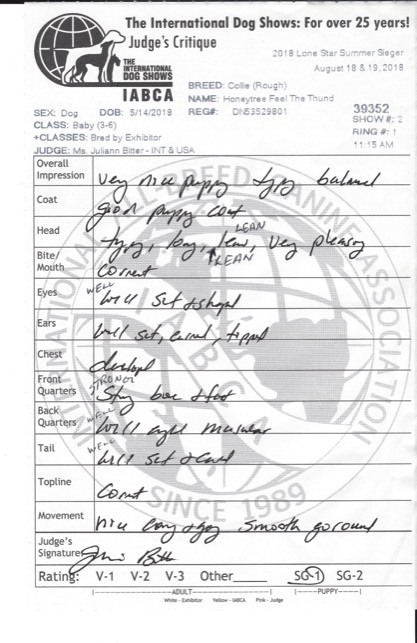 The International Dog Shows: For over 25 years!
Judge's Critique
THE
INTERNATIONAL
DOG SHOWS
IABCA
2018 Lone Star Summer Sieger
August 18 & 19, 2018
BREED: Collie (Rough)
NAME: Honeytree Feel The Thund
SEX: Dog DOB: 5/14/2018 REG#: DN53529801
39352
SHOW #: 2
CLASS: Baby (3-6)
RING #: 1
+CLASSES: Bred by Exhibitor
11:15 AM
JUDGE: Ms. Juliann Bitter - INT & USA
Overall Impression Very nice puppy typy balanced
Coat good puppy coat
LEAN
Head typy, long, lean, very pleasing
LEAN
Bite/Mouth Correct
WELL
Eyes well set & shaped
Ears well set, carried, tipped
Chest developed
STRONG
Front Quarters Strong bone & feet
WELL
Back Quarters well angled muscular
WELL
Tail well set & carried
Topline Correct
Movement nice easy smooth go round
Judge's Signature
Rating: V-1 V-2 V-3 Other____ SG-1 SG-2
ADULT PUPPY
White - Exhibitor Yellow - IABCA Pink - Judge
INTERNATIONAL ALL BREED CANINE ASSOCIATION
SINCE 1989